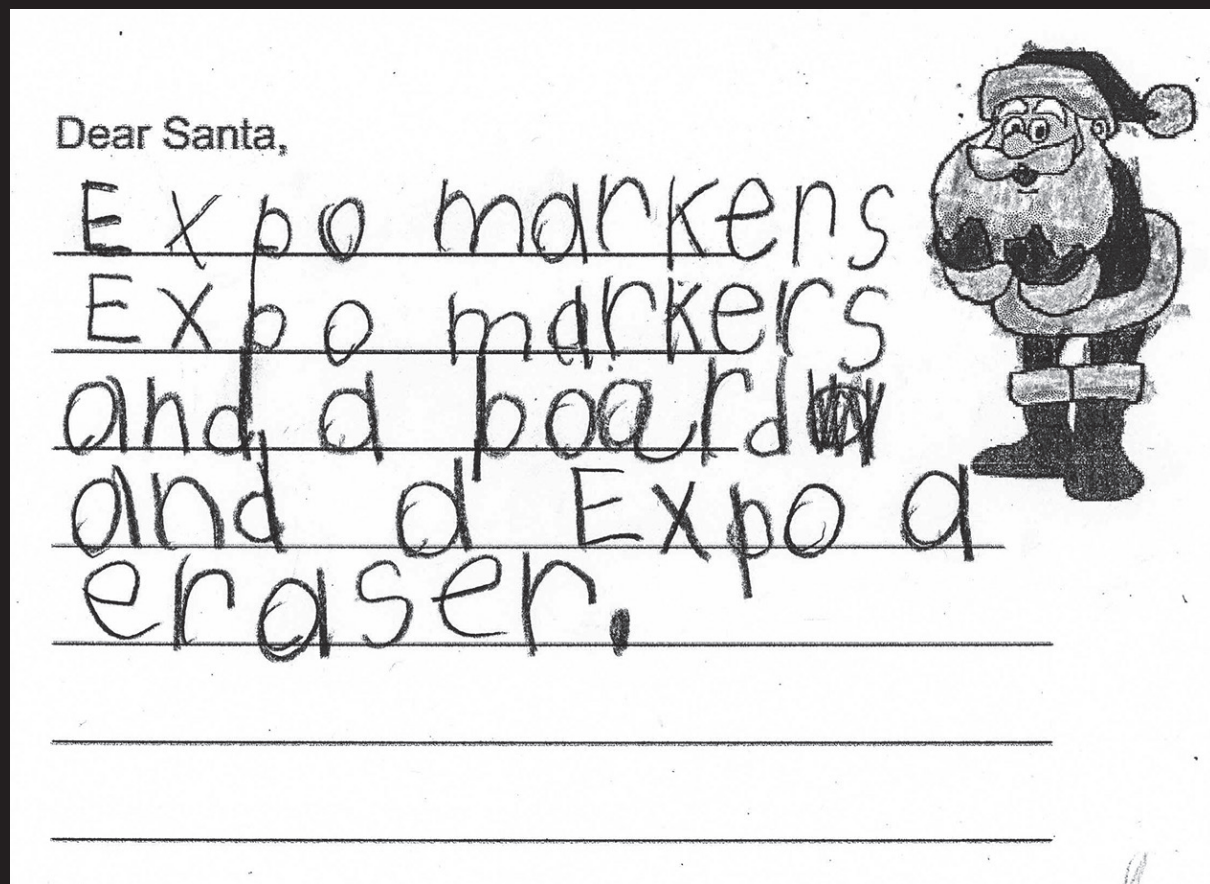 Dear Santa,
Expo markers
Expo markers
and a board
and a Expo a
eraser.